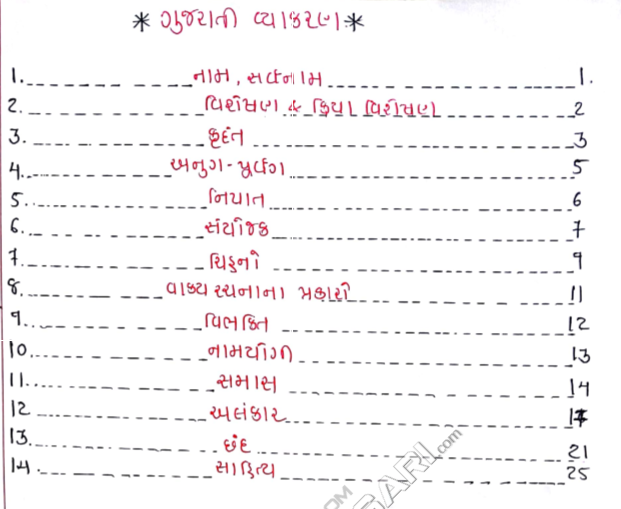 * ગુજરાતી વ્યાકરણ *
1. નામ, સર્વનામ 1.
2. વિશેષણ & ક્રિયા વિશેષણ 2
3. કૃદંત 3
4. અનુગ-પૂર્વગ 5
5. નિપાત 6
6. સંયોજક 7
7. ચિહ્નનો 9
8. વાક્ય રચનાના પ્રકારો 11
9. વિભક્તિ 12
10. નામયોગી 13
11. સમાસ 14
12 અલંકાર 17
13. છંદ 21
14. સાહિત્ય 25